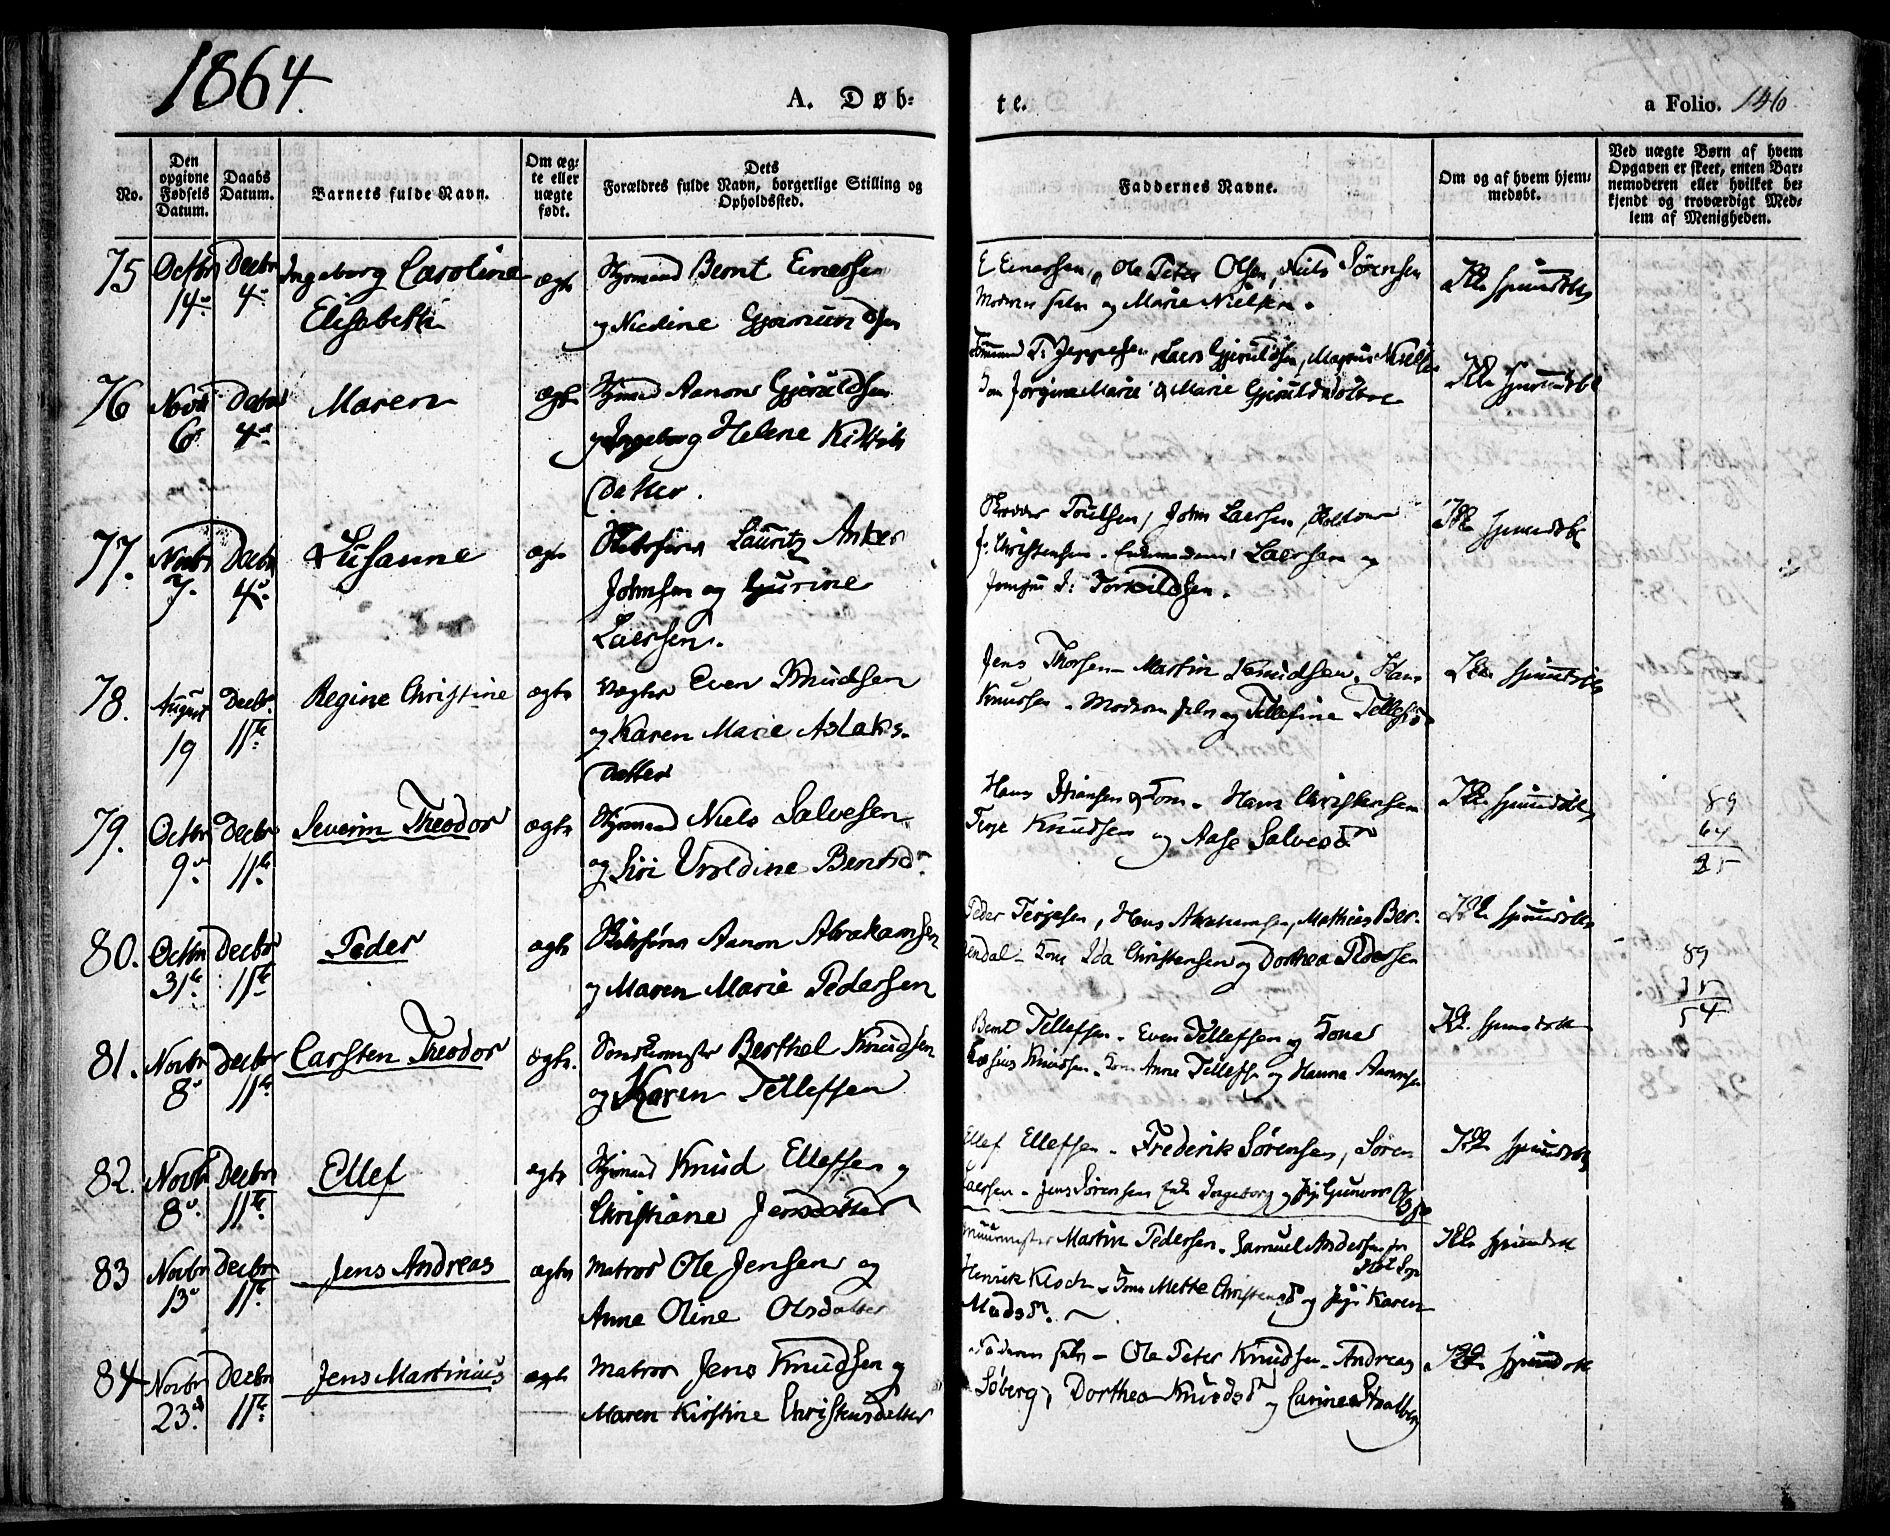 1864.
A. Døb=
te.
a Folio. 146
No.
Den
opgivne
Fødsels
Datum.
Daabs
Datum.
Barnets fulde Navn.
Om æg=
te eller
uægte
født.
Dets
Forældres fulde Navn, borgerlige Stilling og
Opholdssted.
Faddernes Navne.
Om og af hvem hjem=
medøbt.
Ved uægte Børn af hvem
Opgaven er skeet, enten Bar=
nemoderen eller hvilket be=
kjendt og troværdigt Med=
lem af Menigheden.
75 Octbr Decbr Ingeborg Caroline ægte Bernt Einersen
14 4 Elisabeth og Gjømundsen
E Einersen, Ole Peter Olsen, Niels Sørensen
Moderen selv og Marie Nielsen.
Ikke hjemmedøbt
76 Novbr Decbr Maren ægte Aanon Gjeruldsen
6 4 og Ingeborg Helene Kittils
datter.
T. Jeppesen, Lars Gjeruldsen, Magnus Nielsen
Jorgine Marie og Marie Gjerulddatter
Ikke hjemmedøbt
77. Novbr Decbr Susanne ægte Lauritz Anker
7. 4 Johnsen og Gurine
Laersen.
Poulsen, John Laersen,
J. Christensen. Laersen og
Jomfru Torkildsen.
Ikke hjemmedøbt
78. August Decbr. Regine Christine ægte Even Knudsen
19 11te og Karen Marie Aslaks-
datter
Jens Thorsen - Martin Knudsen. Hans
Knudsen - Moderen selv og Tellefine Tellefsd
Ikke hjemmedøbt
79. Octbr Decbr Severin Theodor ægte Niels Salvesen
9 11te og Siri Uroldine Berntsd.
Hans Hansen Hans Christensen
Terje Knudsen og Aase Salvesd
Ikke hjemmedøbt
89
64
25
80. Octbr Decbr Peder ægte Aanon Abrahamsen
31te 11te og Maren Marie Pedersen
Peder Terjesen, Hans Abrahamsen, Mathias Ber-
endal - Ida Christensen og Dorthea Pedersen
Ikke hjemmedøbt
89
54
81. Novbr Decbr Carsten Theodor ægte. Berthel Knudsen
8 11te og Karen Tellefsen
Bernt Tellefsen - Even Tellefsen og
Knudsen. Anne Tellefsen og Hanna Aanonsen
Ikke hjemmedøbt
82. Novbr Decbr Ellef ægte Knud Ellefsen og
8 11te Christiane Jensdatter
Ellef Ellefsen - Frederik Sørensen, Søren
Laersen - Jens Sørensen Ingeborg og Gunvor
Ikke hjemmedøbt
83 Novbr Decbr Jens Andreas ægte Matros Ole Jensen og
13 11te Anne Oline Olsdatter
Muurmester Martin Pedersen. Samuel Andersen
Henrik Mette og Karen
Madsd.
Ikke hjemmedøbt
84 Novbr Decbr Jens Martinius ægte Matros Jens Knudsen og
23 11te Maren Kirstine Christensdatter
Faderen selv - Ole Peter Knudsen - Andreas
Søberg, Dorthea Knudsd og
Ikke hjemmedøbt